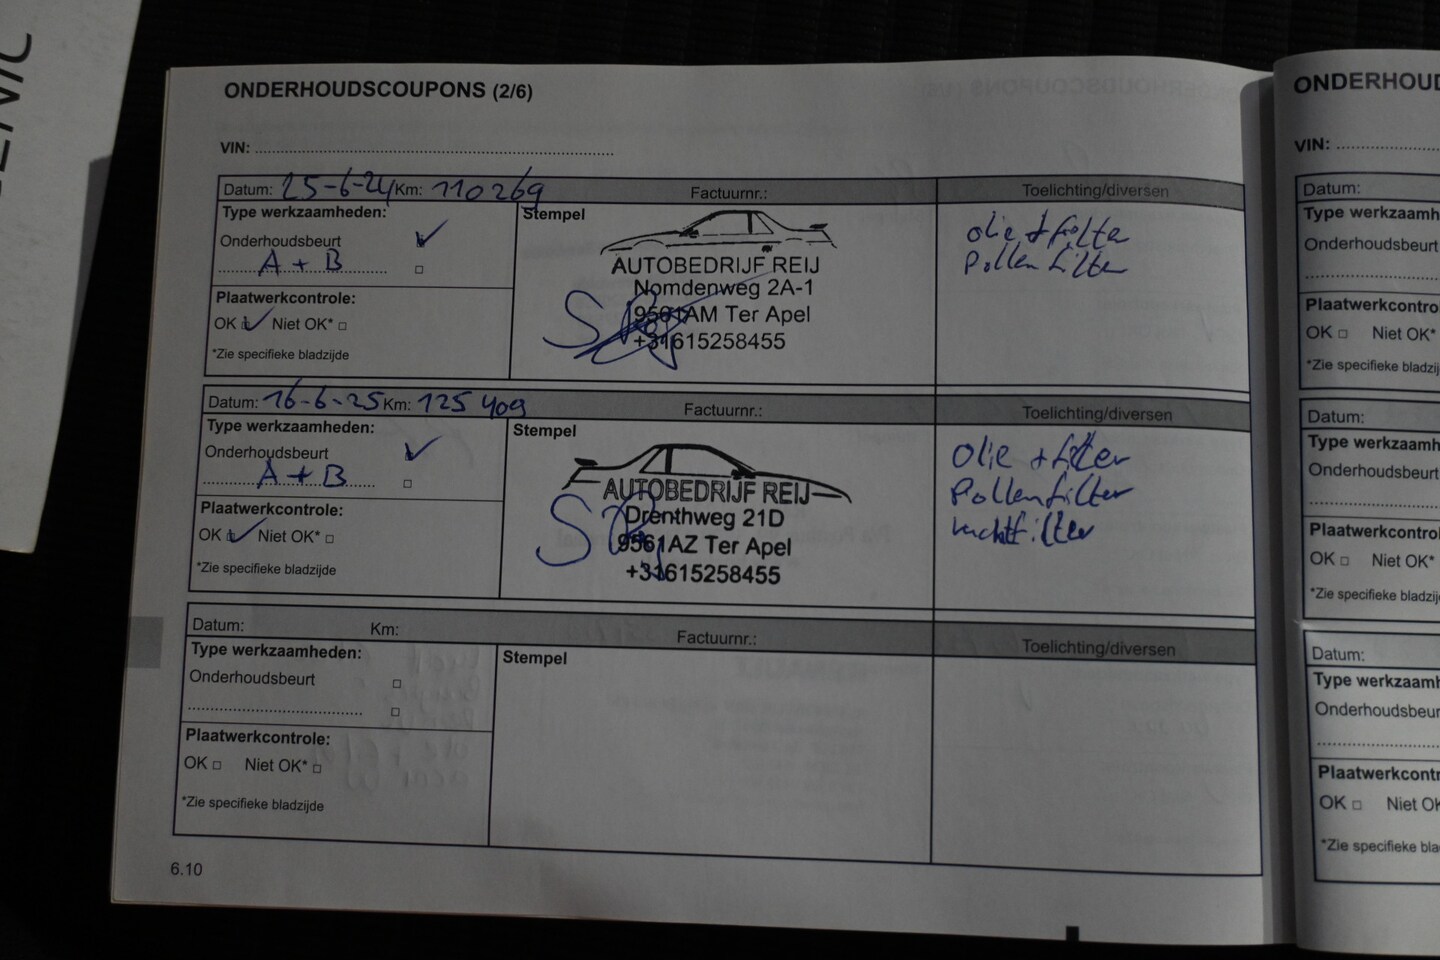 ENIC
ONDERHOUDSCOUPONS (2/6)
VIN:
Datum: 25-6-24 Km: 110269 Factuurnr.: Toelichting/diversen
Type werkzaamheden:
Onderhoudsbeurt
A + B
Plaatwerkcontrole:
OK Niet OK*
*Zie specifieke bladzijde
Stempel
AUTOBEDRIJF REIJ
Nomdenweg 2A-1
9561AM Ter Apel
+31615258455
olie + filter
Pollenfilter
Datum: 16-6-25 Km: 125409 Factuurnr.: Toelichting/diversen
Type werkzaamheden:
Onderhoudsbeurt
A + B
Plaatwerkcontrole:
OK Niet OK*
*Zie specifieke bladzijde
Stempel
AUTOBEDRIJF REIJ
Drenthweg 21D
9561AZ Ter Apel
+31615258455
Olie + filter
Pollenfilter
luchtfilter
Datum: Km: Factuurnr.: Toelichting/diversen
Type werkzaamheden:
Onderhoudsbeurt
Plaatwerkcontrole:
OK Niet OK*
*Zie specifieke bladzijde
Stempel
6.10
ONDERHOUD
VIN:
Datum:
Type werkzaamh
Onderhoudsbeurt
Plaatwerkcontro
OK Niet OK*
*Zie specifieke bladzij
Datum:
Type werkzaamh
Onderhoudsbeurt
Plaatwerkcontrol
OK Niet OK*
*Zie specifieke bladzij
Datum:
Type werkzaamh
Onderhoudsbeur
Plaatwerkcontr
OK Niet O
*Zie specifieke bla